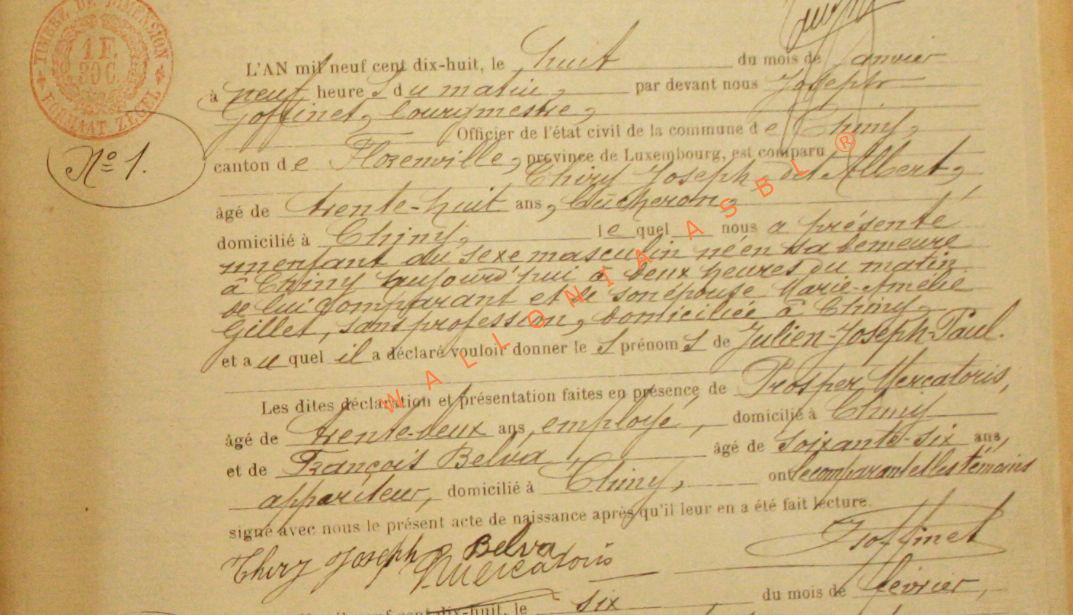 TIMBRE DE DIMENSION
1 F.
30 C.
FORMAAT ZEGEL
L'AN mil neuf cent dix-huit, le huit du mois de Janvier
à neuf heures du matin, par devant nous Joseph
Goffinet, bourgmestre,
Officier de l'état civil de la commune de Chiny,
No 1.
canton de Florenville, province de Luxembourg, est comparu
Thiry Joseph dit Albert,
âgé de trente-huit ans, bûcheron,
domicilié à Chiny, lequel nous a présenté
un enfant du sexe masculin né en sa demeure
à Chiny aujourd'hui à deux heures du matin
de lui comparant et de son épouse Marie-Amélie
Gillet, sans profession, domiciliée à Chiny,
et au quel il a déclaré vouloir donner les prénoms de Julien-Joseph-Paul.
Les dites déclaration et présentation faites en présence de Prosper Mercatoris,
âgé de trente-deux ans, employé, domicilié à Chiny
et de François Belva, âgé de soixante-six ans,
appariteur, domicilié à Chiny, ont le comparant et les témoins
signé avec nous le présent acte de naissance après qu'il leur en a été fait lecture.
Thiry Joseph Belva Goffinet
Mercatoris
mil neuf cent dix-huit, le six du mois de février,
WALLONIA ASBL ®